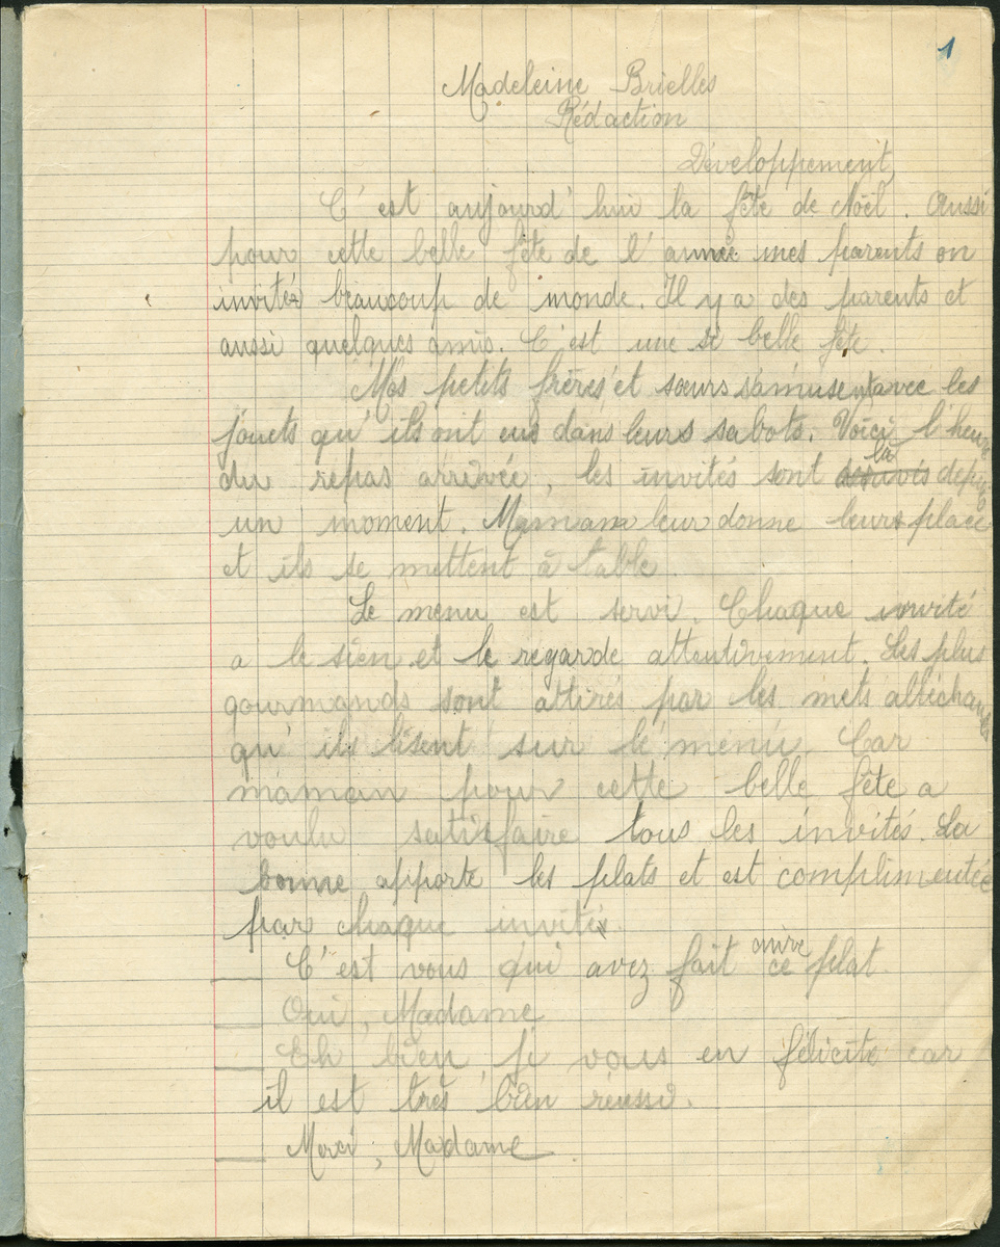 1
Madeleine Brielles
Rédaction
Développement
C'est aujourd'hui la fête de Noël. Aussi
pour cette belle fête de l'année mes parents on
invités beaucoup de monde. Il y a des parents et
aussi quelques amis. C'est une si belle fête.
Mes petits frères et sœurs s'amusent avec les
jouets qu'ils ont eus dans leurs sabots. Voici l'heure
du repas arrivée, les invités sont arrivés là depuis
un moment. Maman leur donne leurs place
et ils se mettent à table.
Le menu est servi. Chaque invité
a le sien et le regarde attentivement. Les plus
gourmands sont attirés par les mets alléchants
qu'ils lisent sur le menu. Car
maman pour cette belle fête a
voulu satisfaire tous les invités. La
bonne apporte les plats et est complimentée
par chaque invités.
— C'est vous qui avez fait cuire ce plat.
— Oui, Madame
— Eh bien, je vous en félicite car
il est très bien réussi.
— Merci, Madame.